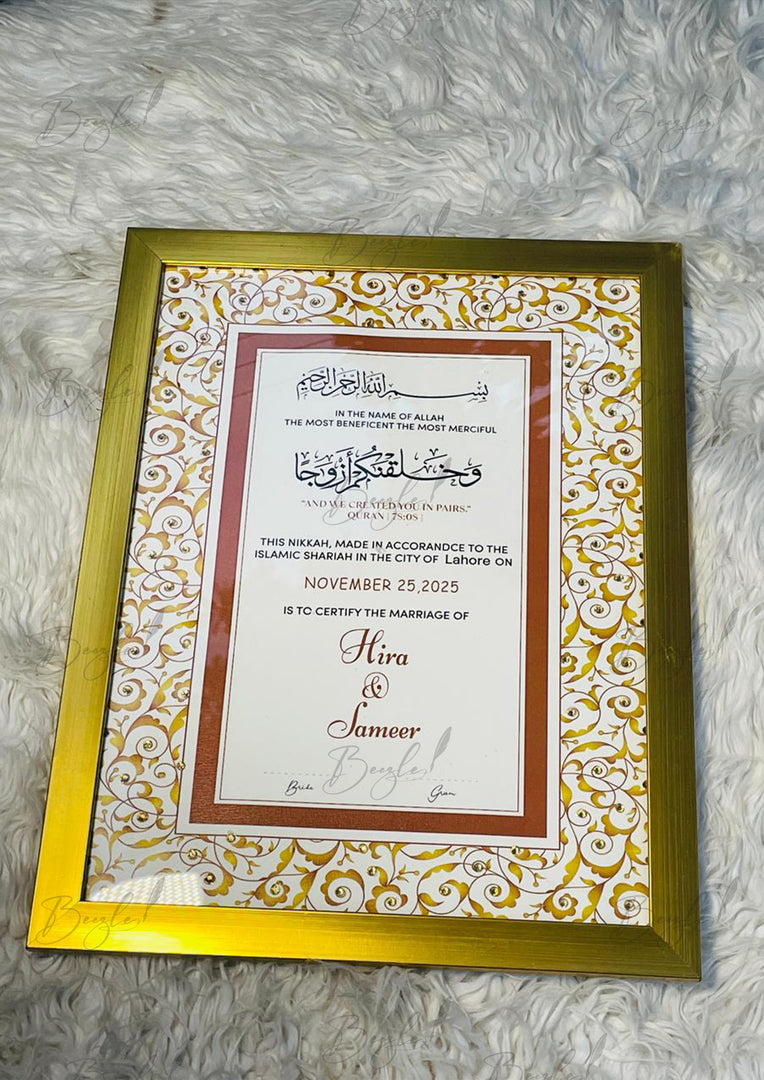 بسم الله الرحمن الرحيم
IN THE NAME OF ALLAH
THE MOST BENEFICENT THE MOST MERCIFUL
وَخَلَقْنَٰكُمْ أَزْوَٰجًا
"AND WE CREATED YOU IN PAIRS."
QURAN | 78:08 |
THIS NIKKAH, MADE IN ACCORANDCE TO THE
ISLAMIC SHARIAH IN THE CITY OF Lahore ON
NOVEMBER 25,2025
IS TO CERTIFY THE MARRIAGE OF
Hira
&
Sameer
Beezle
Bride
Grom